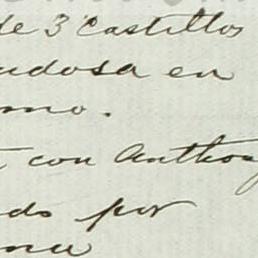 de 3 Castillos
udosa en
mo.
con Anthon
do por
na